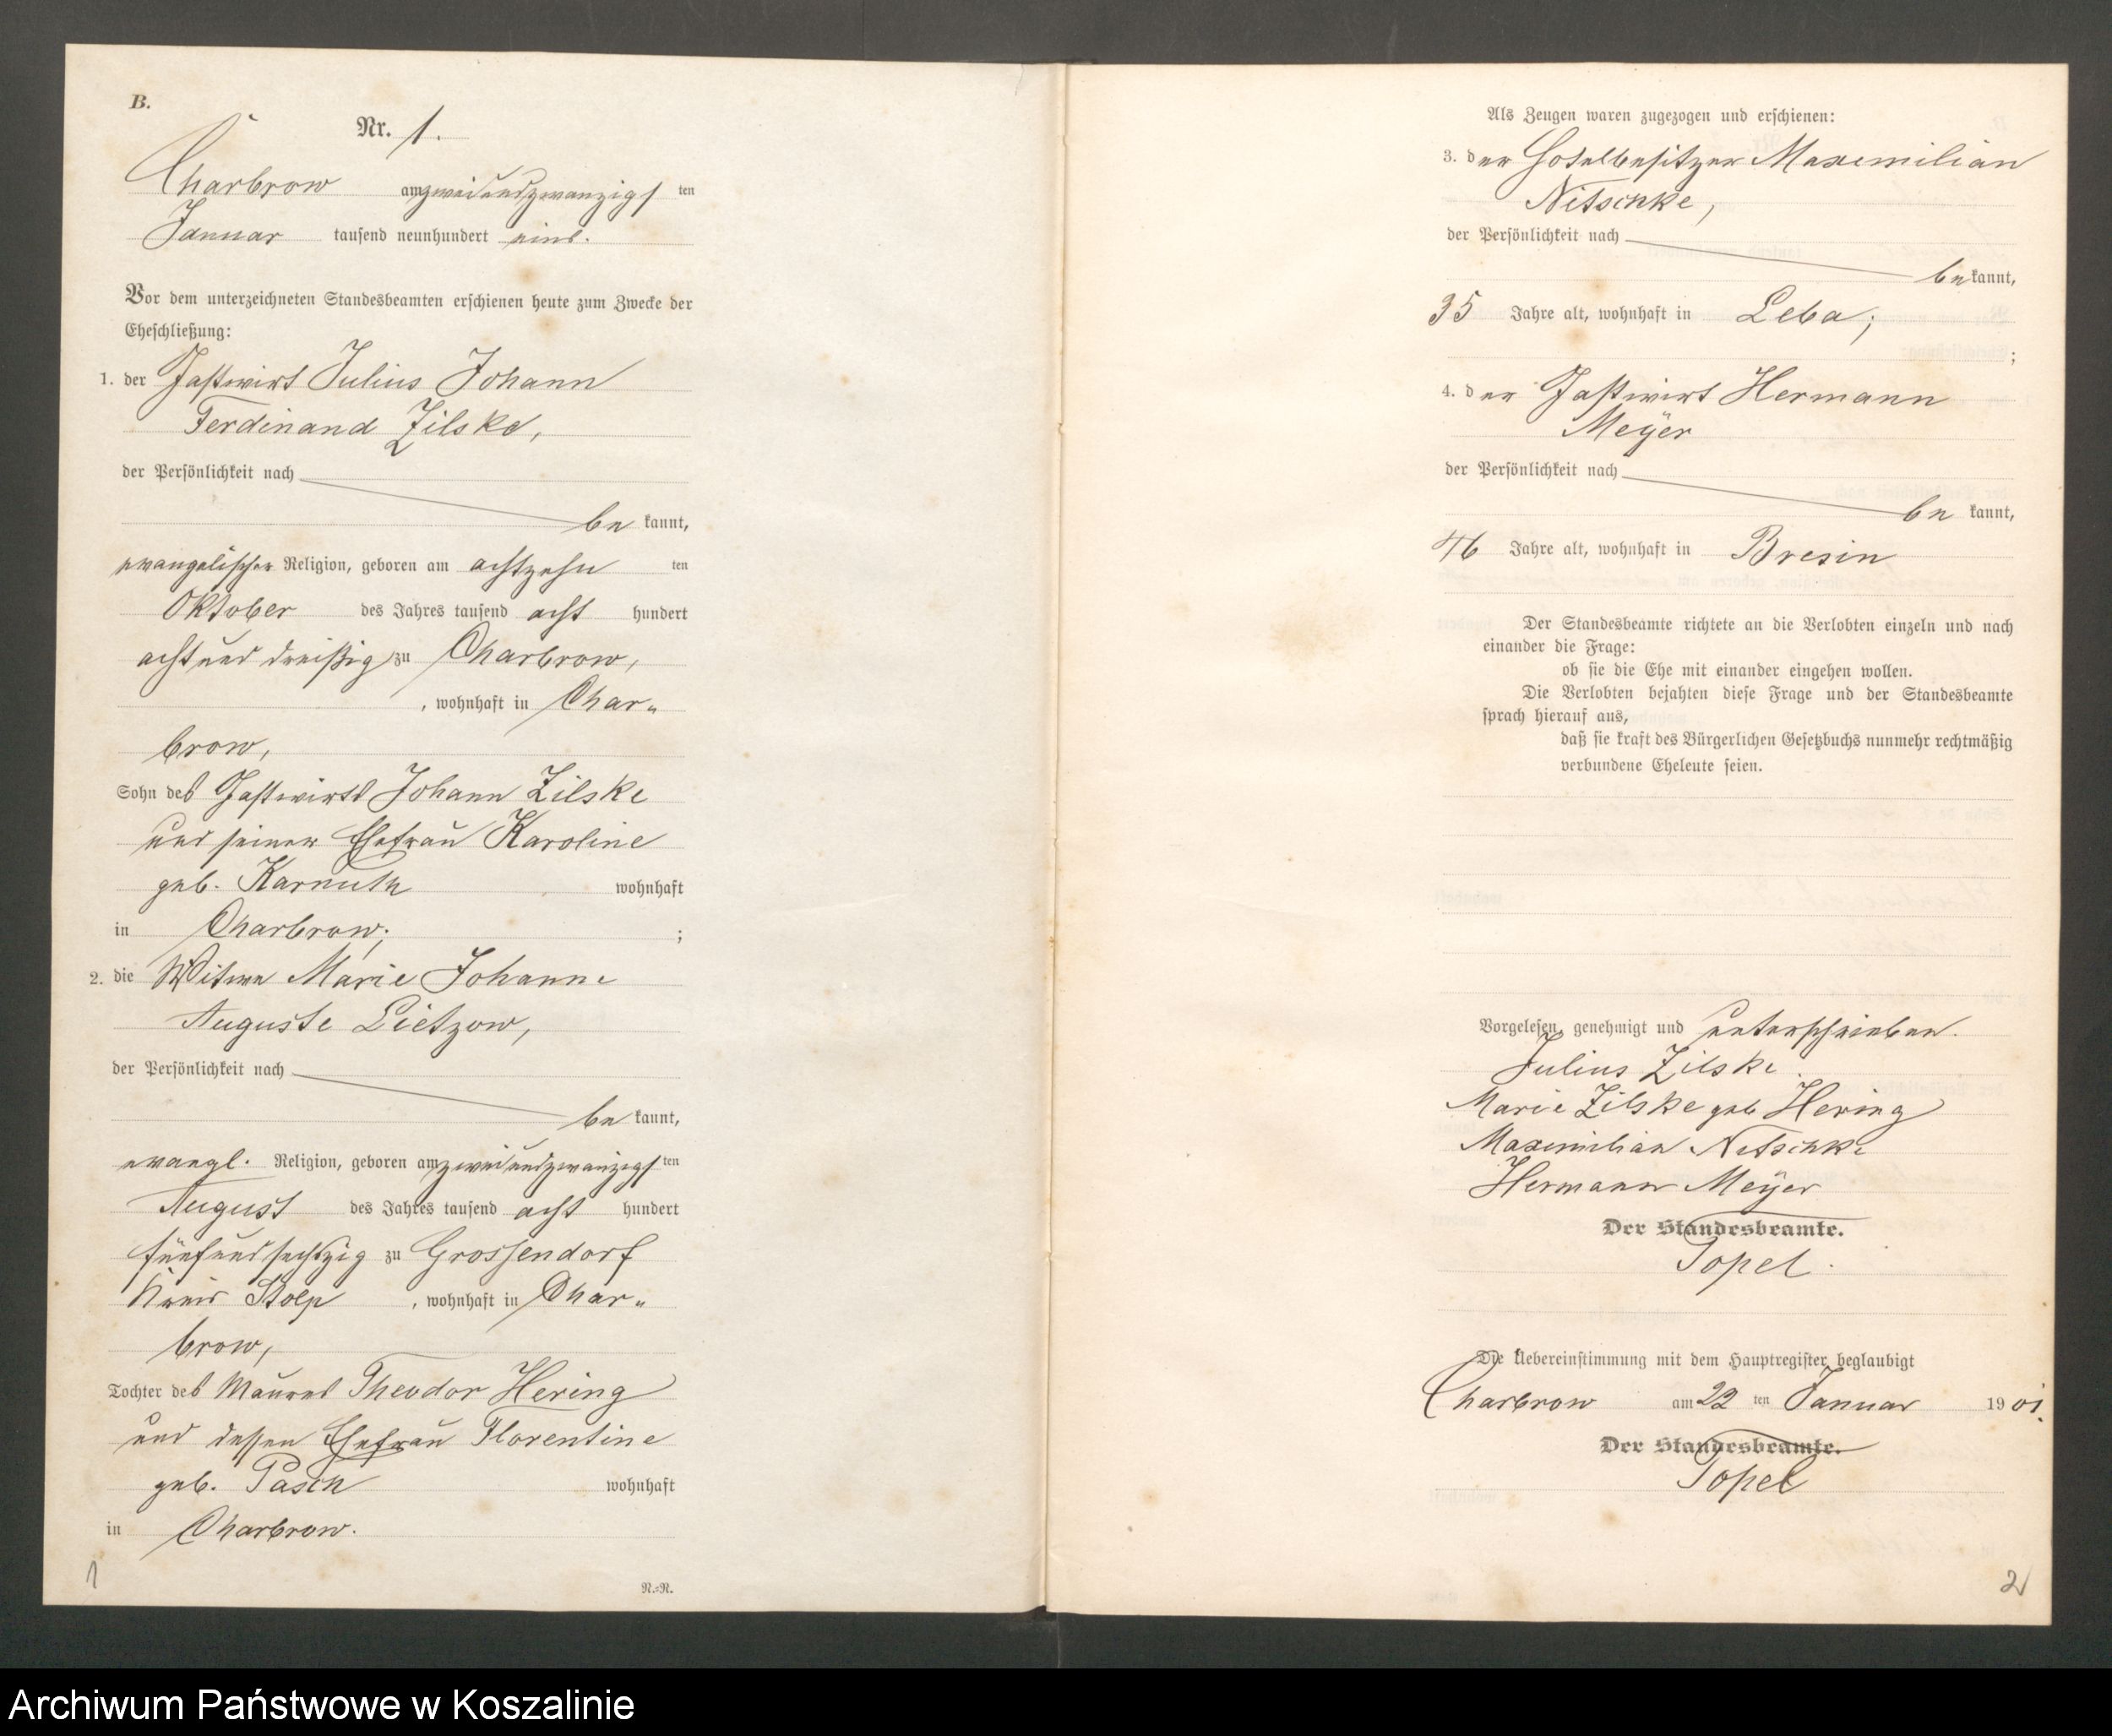 B.
Nr. 1.
Charbrow am zweiundzwanzigsten
Januar tausend neunhundert eins.
Vor dem unterzeichneten Standesbeamten erschienen heute zum Zwecke der
Eheschließung:
1. der Gastwirt Julius Johann
Ferdinand Zilske,
der Persönlichkeit nach
be kannt,
evangelischer Religion, geboren am achtzehn ten
Oktober des Jahres tausend acht hundert
achtund dreißig zu Charbrow,
, wohnhaft in Char-
brow,
Sohn des Gastwirts Johann Zilske
und seiner Ehefrau Karoline
geb. Karnuth wohnhaft
in Charbrow; ;
2. die Witwe Marie Johanne
Auguste Lietzow,
der Persönlichkeit nach
be kannt,
evangl. Religion, geboren am zweiundzwanzigsten
August des Jahres tausend acht hundert
fünfundsechszig zu Grossendorf
Kreis Stolp , wohnhaft in Char-
brow,
Tochter des Maurers Theodor Hering
und dessen Ehefrau Florentine
geb. Pasch wohnhaft
in Charbrow.
1
N.=N.
Als Zeugen waren zugezogen und erschienen:
3. der Hotelbesitzer Maxemilian
Nitschke,
der Persönlichkeit nach
bekannt,
35 Jahre alt, wohnhaft in Leba;
;
4. der Gastwirt Hermann
Meÿer
der Persönlichkeit nach
be kannt,
46 Jahre alt, wohnhaft in Bresin
Der Standesbeamte richtete an die Verlobten einzeln und nach
einander die Frage:
ob sie die Ehe mit einander eingehen wollen.
Die Verlobten bejahten diese Frage und der Standesbeamte
sprach hierauf aus,
daß sie kraft des Bürgerlichen Gesetzbuchs nunmehr rechtmäßig
verbundene Eheleute seien.
Vorgelesen, genehmigt und unterschrieben.
Julius Zilske.
Marie Zilske geb Hering
Maxemilian Nitschke
Hermann Meÿer
Der Standesbeamte.
Topel.
Die Uebereinstimmung mit dem Hauptregister beglaubigt
Charbrow am 22 ten Januar 1901.
Der Standesbeamte.
Topel
2
Archiwum Państwowe w Koszalinie